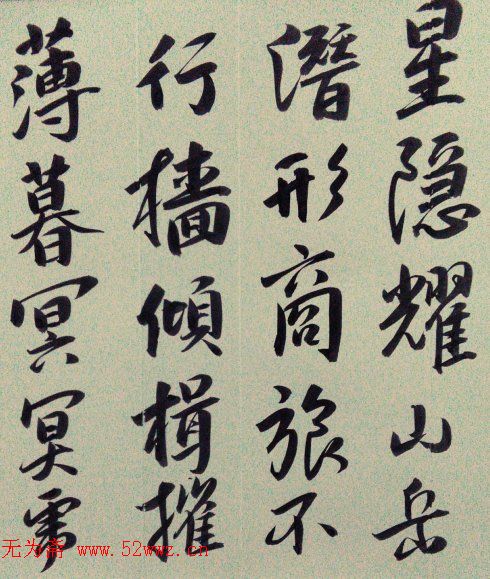 星隐耀山岳
潛形商旅不
行檣傾楫摧
薄暮冥冥虎
无为斋 www.52wwz.cn